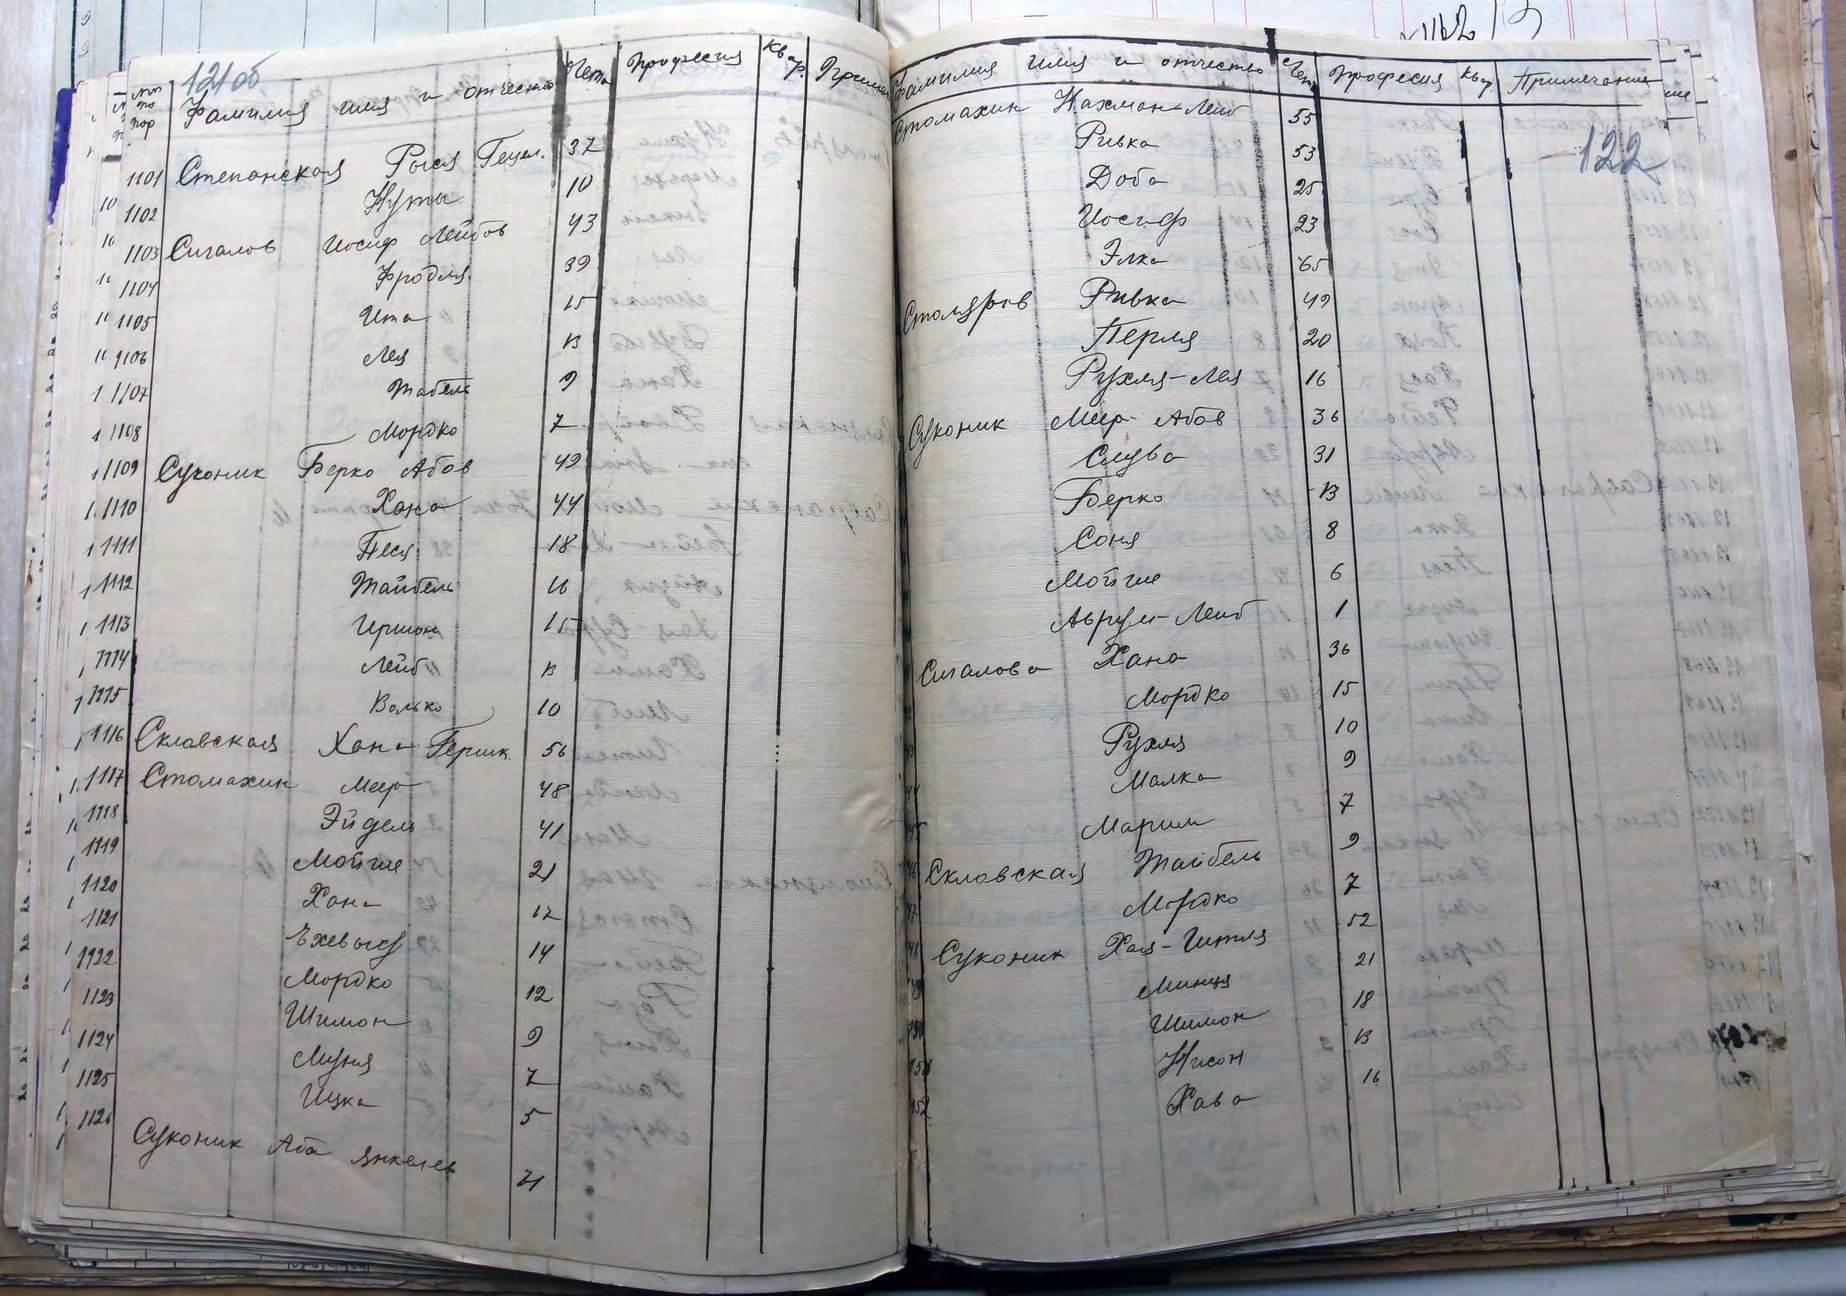 121об
№№ по пор Фамилия имя и отчество Лета Професия Кв-ра
1101 Степанская Рыся Гецел. 37
1102 Нута 10
1103 Сигалов Иосиф Лейбов 43
1104 Фродля 39
1105 Ита 15
1106 Лея 13
1107 Тайбель 9
1108 Мордко 7
1109 Суконик Берко Абов 49
1110 Хана 44
1111 Песя 18
1112 Тайбель 16
1113 Гершон 15
1114 Лейб 13
1115 Волько 10
1116 Склавская Хана Гершк. 56
1117 Стомахин Меер 48
1118 Эйдель 41
1119 Мойше 21
1120 Хана 17
1121 14
1922 Мордко 12
1123 Шимон 9
1124 Муня 7
1125 Ицка 5
1126 Суконик Аба Янкелев 71
Фамилия имя и отчество Лет Професия Кв-р Примечание
122
Стомахин Нахман-Лейб 55
Ривка 53
Доба 25
Иосиф 23
Элка 65
Столяров Ривка 49
Перля 20
Рухля-Лея 16
Суконик Меер Абов 36
Слува 31
Берко 13
Соня 8
Мойше 6
Аврум-Лейб 1
Сигалова Хана 36
Мордко 15
Рухля 10
Малка 9
Марим 7
Склавская Тайбель 9
Мордко 7
Суконик Хая-Гитля 52
Минця 21
Шимон 18
Нисон 13
Хава 16